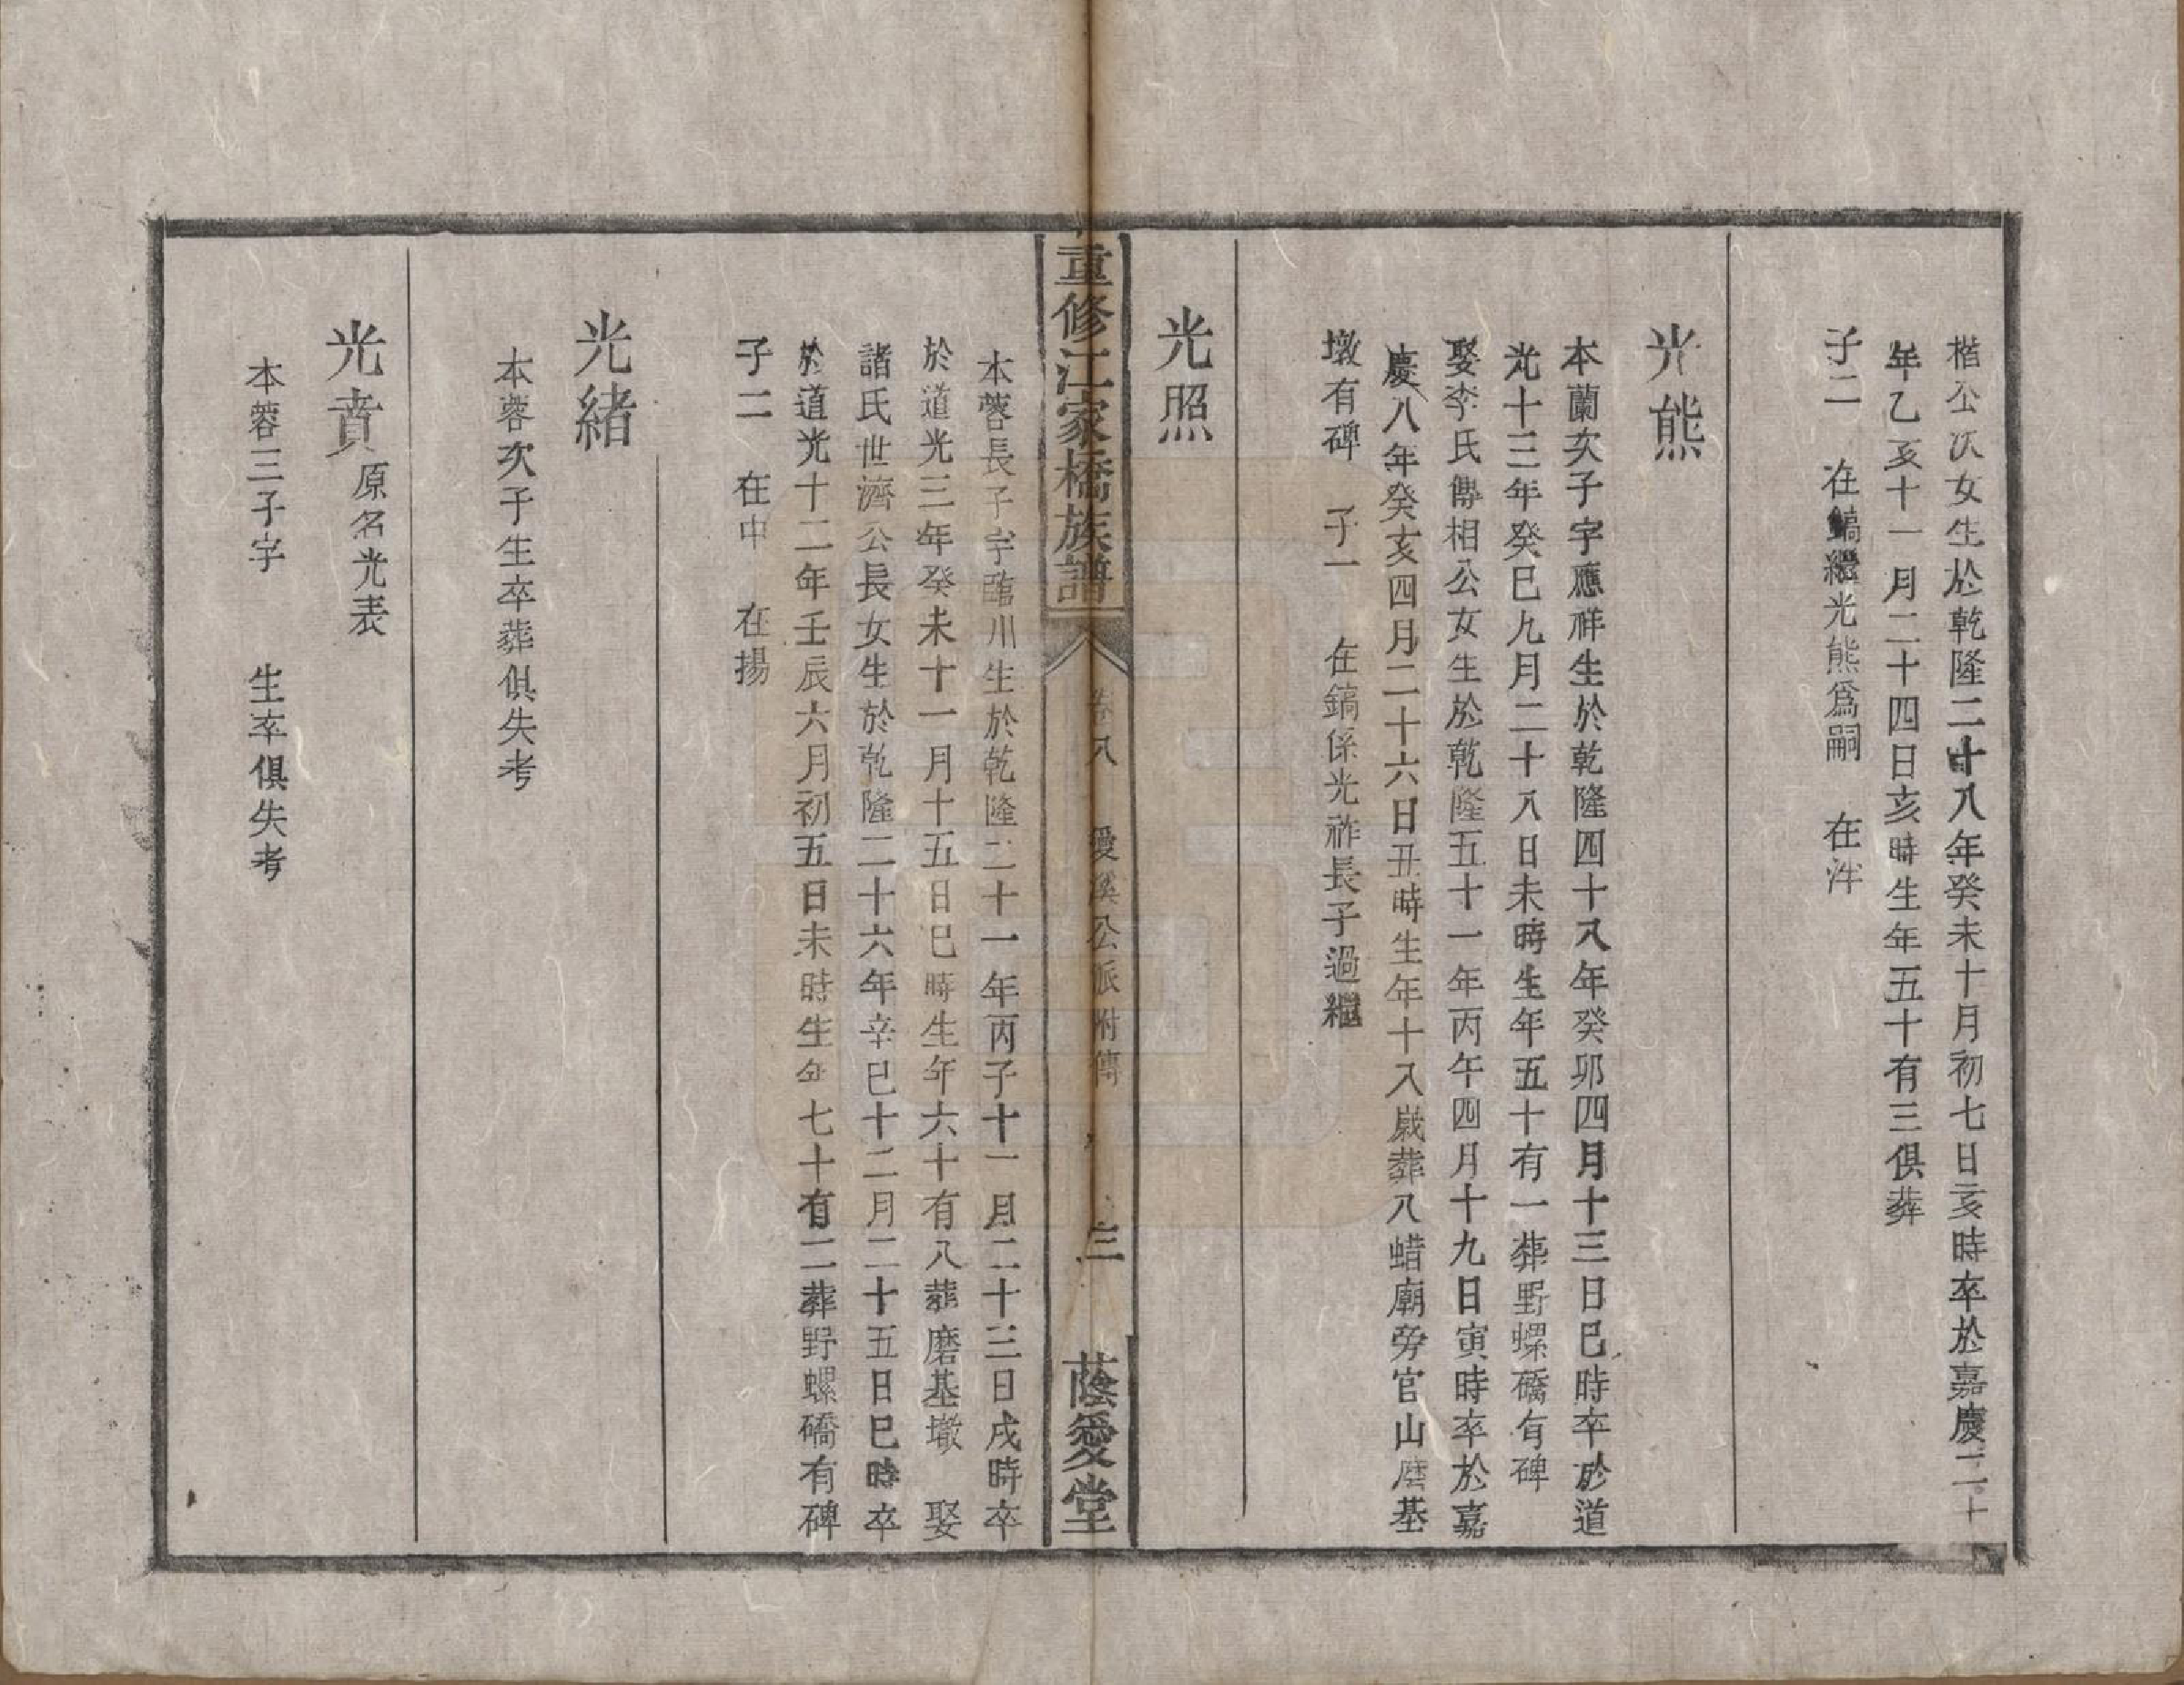 楷公次女生於乾隆二十八年癸未十月初七日亥時卒於嘉慶二十
年乙亥十一月二十四日亥時生年五十有三俱葬
子二　在鎬繼光熊爲嗣　在泮
光熊
本蘭次子字應祥生於乾隆四十八年癸卯四月十三日巳時卒於道
光十三年癸巳九月二十八日未時生年五十有一葬野螺礄有碑
娶李氏傳相公女生於乾隆五十一年丙午四月十九日寅時卒於嘉
慶八年癸亥四月二十六日丑時生年十八歲葬八蜡廟旁官山磨基
墩有碑　子一　在鎬係光祚長子過繼
光照
重修江家橋族譜
卷八　愛溪公派附傳
三
蔭愛堂
本蓉長子字臨川生於乾隆二十一年丙子十一月二十三日戌時卒
於道光三年癸未十一月十五日巳時生年六十有八葬磨基墩　娶
諸氏世濟公長女生於乾隆二十六年辛巳十二月二十五日巳時卒
於道光十二年壬辰六月初五日未時生年七十有二葬野螺礄有碑
子二　在中　在揚
光緒
本蓉次子生卒葬俱失考
光賁原名光表
本蓉三子字　　生卒俱失考